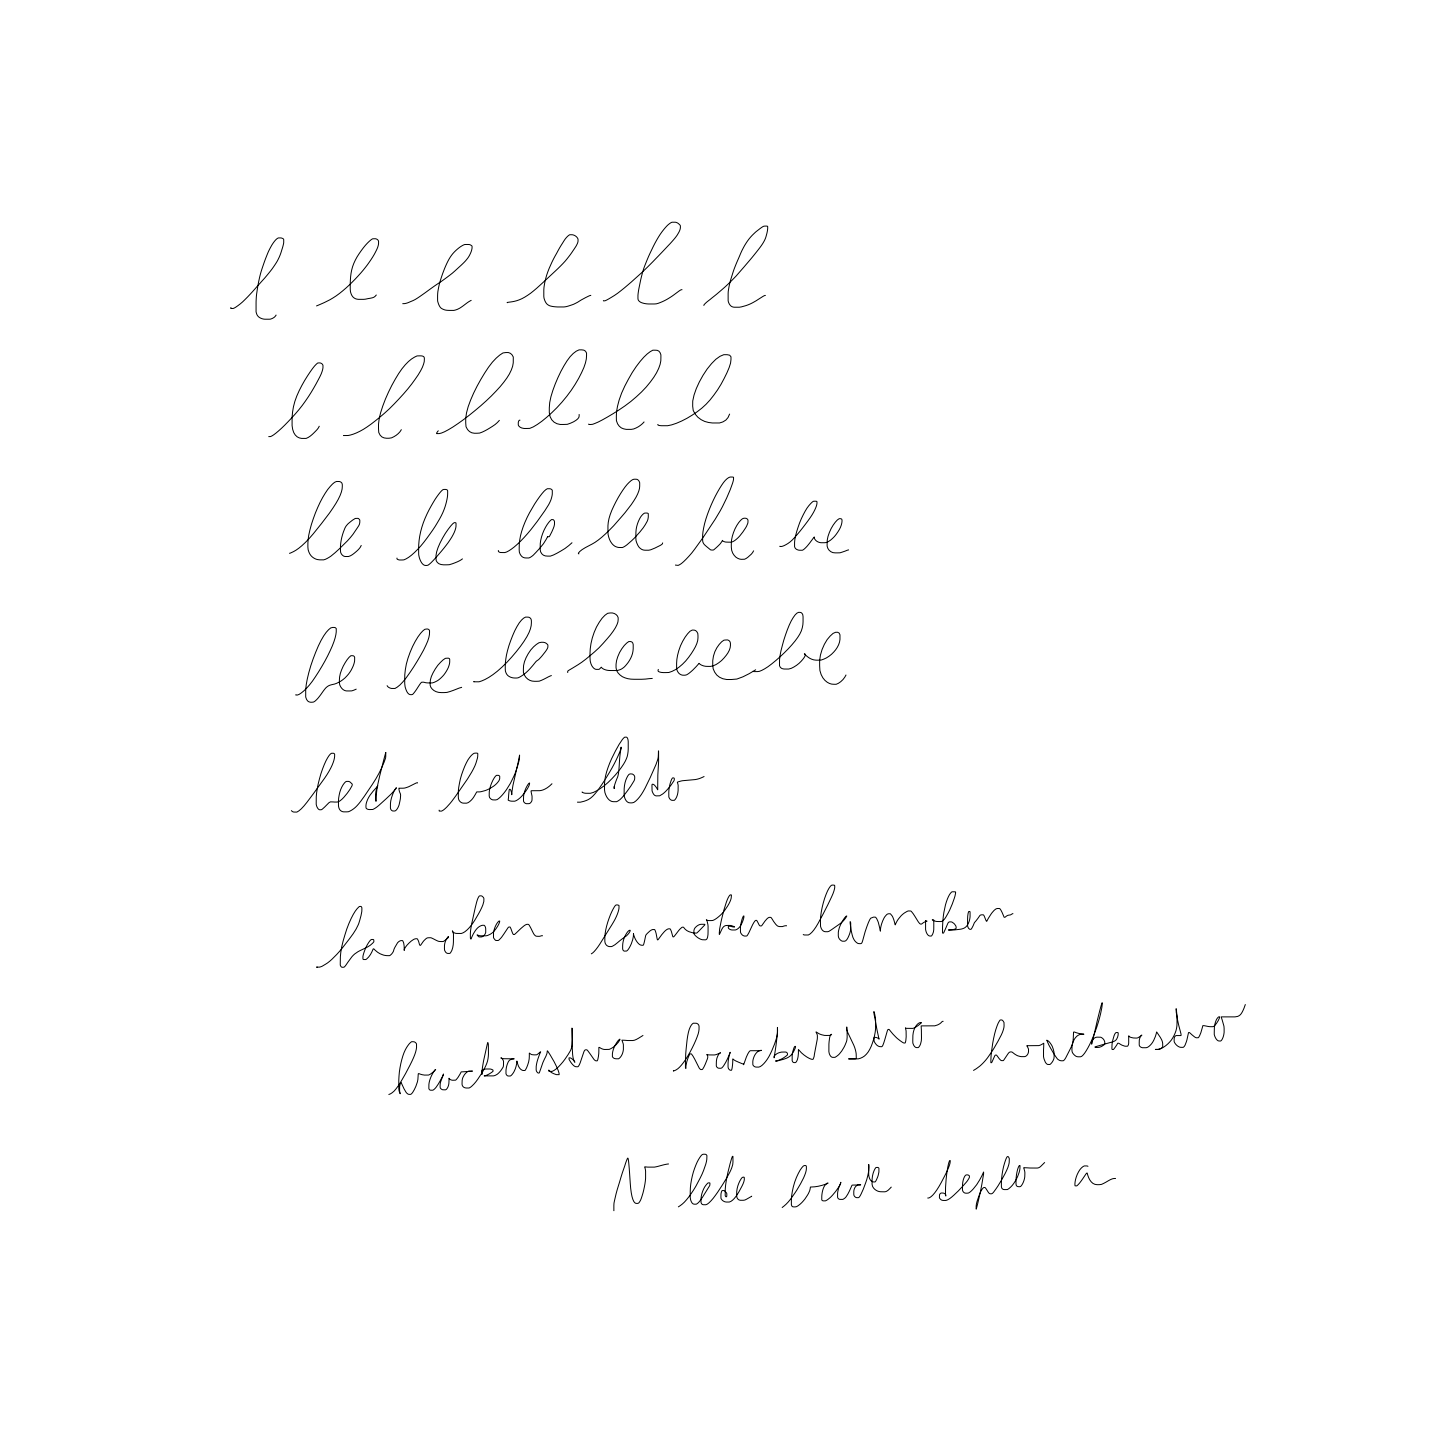 l l l l l l
l l l l l l
le le le le le le
le le le le le le
leto leto leto
lamoken lamoken lamoken
hrackarstvo hrackarstvo hrackarstvo
V lete bude teplo a